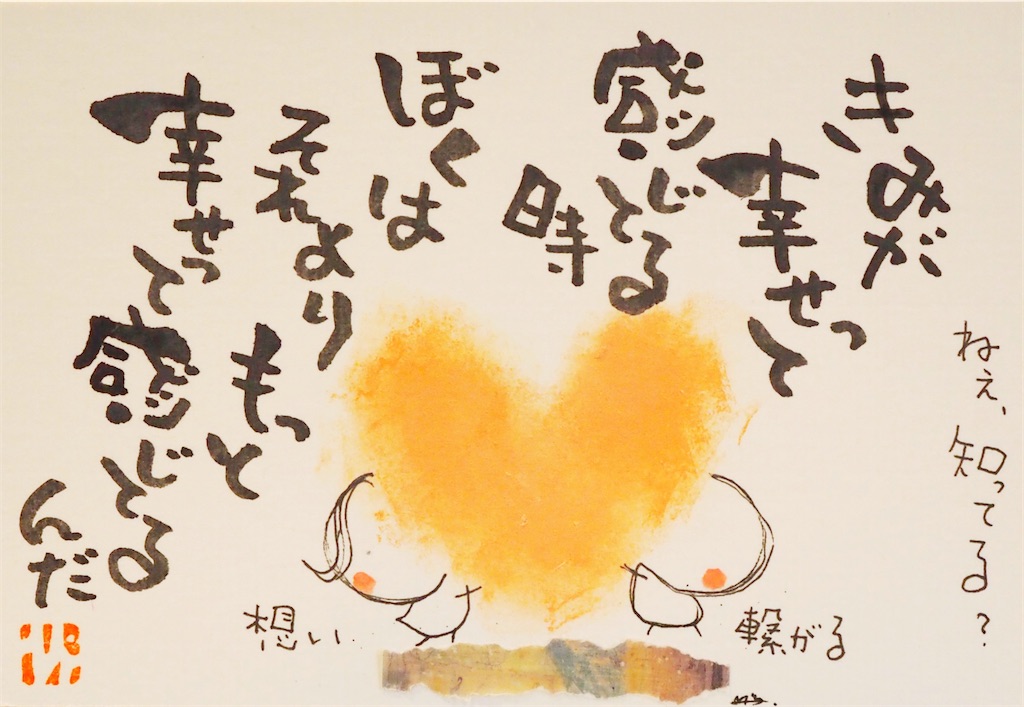 ねぇ、知ってる?
きみが
幸せって
感じとる
時
ぼくは
それより
もっと
幸せって
感じとる
んだ
想い
繋がる